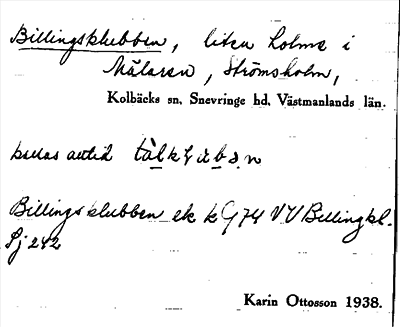 Billingsklubben, liten holme i
Mälaren, Strömsholm,
Kolbäcks sn, Snevringe hd, Västmanlands län.
kallas alltid
Billingsklubben ek k G74 VU Billingkl.
Sj 242
Karin Ottosson 1938.